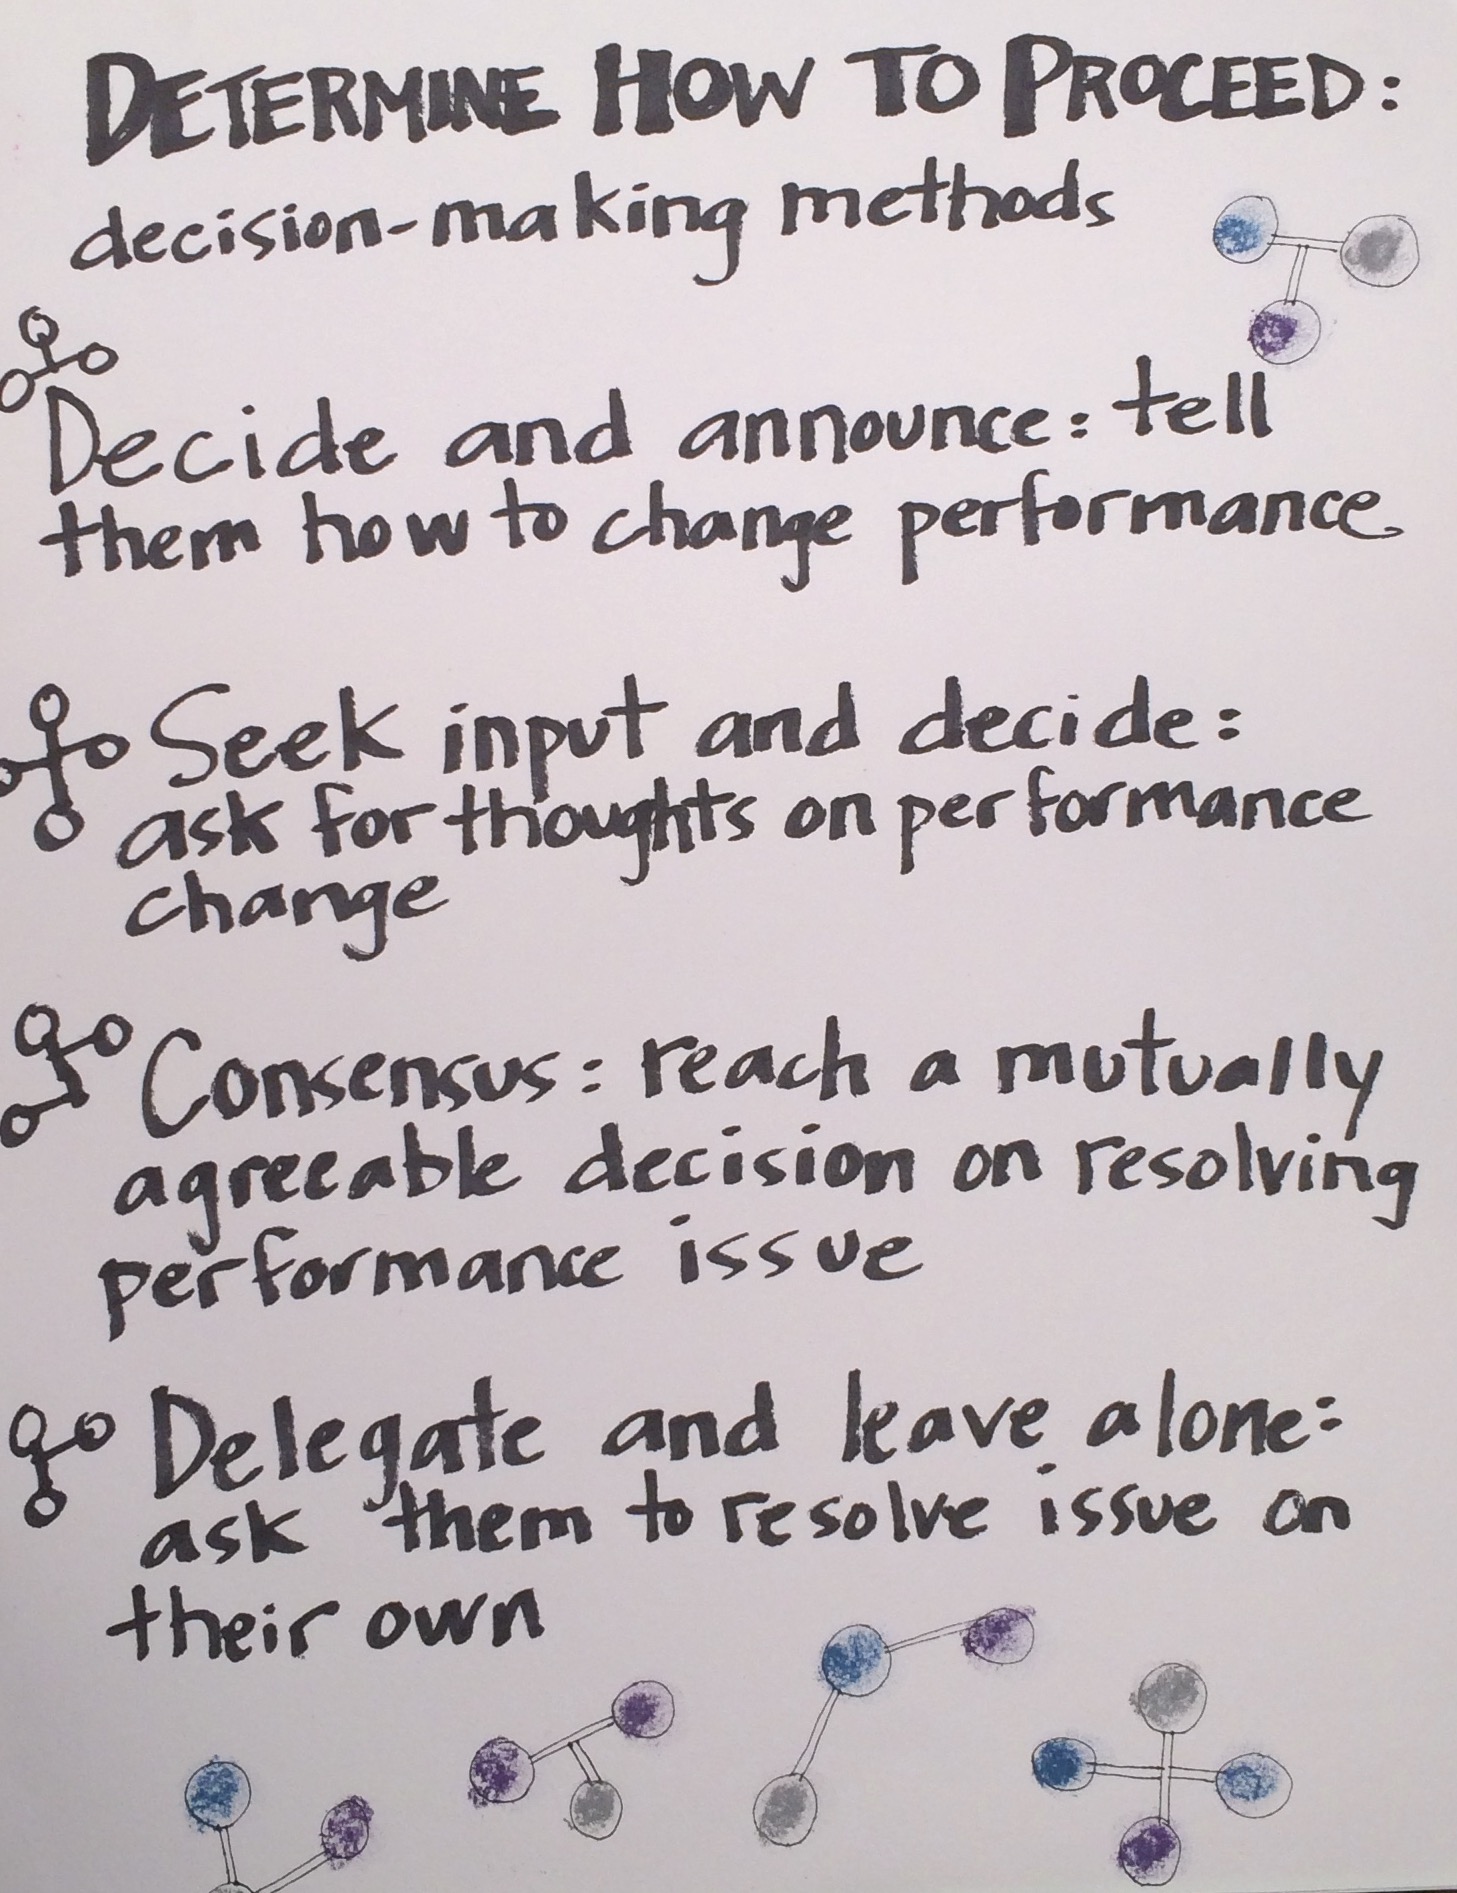 DETERMINE HOW TO PROCEED:
decision-making methods
Decide and announce: tell
them how to change performance
Seek input and decide:
ask for thoughts on performance
change
Consensus: reach a mutually
agreeable decision on resolving
performance issue
Delegate and leave alone:
ask them to resolve issue on
their own